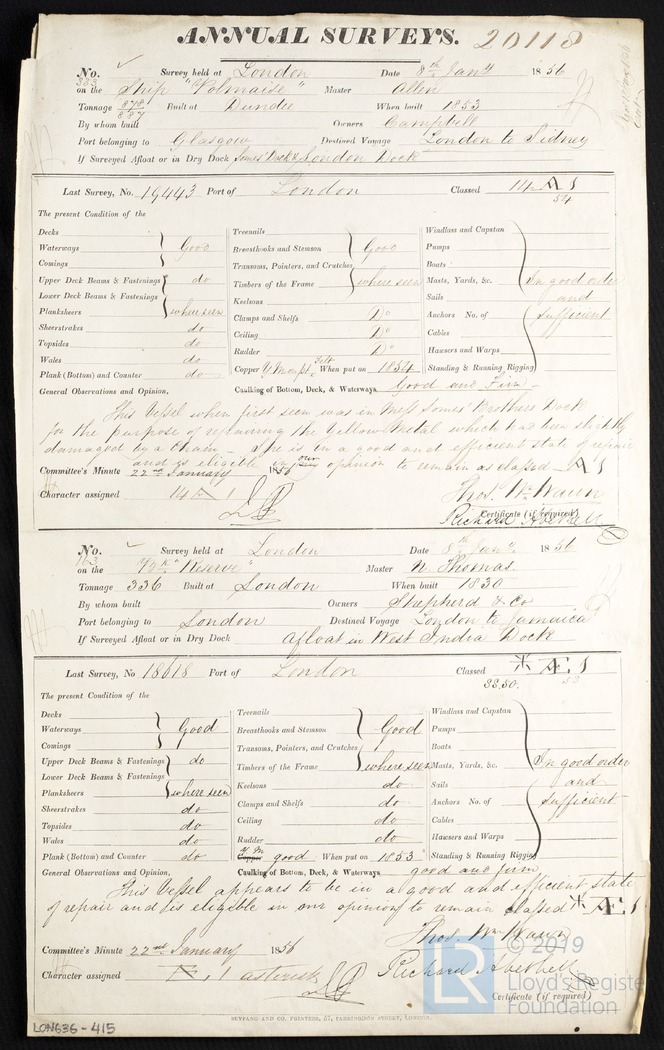 ANNUAL SURVEYS. 20118
No. 363 Survey held at London Date 8th Jany 1856
on the Ship "Volmaise" Master Allen
Tonnage 878/887 Built at Dundee When built 1853
By whom built Owners Campbell
Port belonging to Glasgow Destined Voyage London to Sidney
If Surveyed Afloat or in Dry Dock Somes' Dock & London Dock
Last Survey, No. 19443 Port of London Classed 14 A 1
54
The present Condition of the
Decks Treenails Windlass and Capstan
Waterways Good Breasthooks and Stemson Good Pumps
Comings Transoms, Pointers, and Crutches Boats
Upper Deck Beams & Fastenings do Timbers of the Frame where seen Masts, Yards, &c. In good order
Lower Deck Beams & Fastenings Keelsons Sails and
Planksheers where seen Clamps and Shelfs Do Anchors No. of sufficient
Sheerstrakes do Ceiling Do Cables
Topsides do Rudder Do Hawsers and Warps
Wales do Copper Y Metal Felt When put on 1854 Standing & Running Rigging
Plank (Bottom) and Counter do Caulking of Bottom, Deck, & Waterways Good and Firm
General Observations and Opinion,
This Vessel when first seen was in Mess Somes' Brothers Dock
for the purpose of repairing the Yellow Metal which had been slightly
damaged by a Chain - She is in a good and efficient state of repair
and is eligible in our opinion to remain as classed - A 1
Committee's Minute 22nd January 1856
Character assigned 14 A 1 Thos. Wm Wawn
Certificate (if required)
Richard Abethell
No. 163 Survey held at London Date 8th Jany 1856
on the Bk "Reserve" Master N Thomas
Tonnage 336 Built at London When built 1830
By whom built Owners Shepherd & Co
Port belonging to London Destined Voyage London to Jamaica
If Surveyed Afloat or in Dry Dock Afloat in West India Dock
Last Survey, No 18618 Port of London Classed * Æ 1
38.50. 53
The present Condition of the
Decks Treenails Windlass and Capstan
Waterways Good Breasthooks and Stemson Good Pumps
Comings Transoms, Pointers, and Crutches Boats
Upper Deck Beams & Fastenings do Timbers of the Frame where seen Masts, Yards, &c. In good order
Lower Deck Beams & Fastenings Keelsons do Sails and
Planksheers where seen Clamps and Shelfs do Anchors No. of sufficient
Sheerstrakes do Ceiling do Cables
Topsides do Rudder do Hawsers and Warps
Wales do Copper Y M good When put on 1853 Standing & Running Rigging
Plank (Bottom) and Counter do Caulking of Bottom, Deck, & Waterways good and firm
General Observations and Opinion,
This Vessel appears to be in a good and efficient state
of repair and is eligible in our opinion to remain classed * Æ 1
Thos. Wm Wawn
Committee's Minute 22nd January 1856
Richard Abethell
Character assigned Æ 1 asterisk
Certificate (if required)
SEYFANG AND CO. PRINTERS, 57, FARRINGDON STREET, LONDON.
LON636-415
LR
© 2019
Lloyd's Register
Foundation